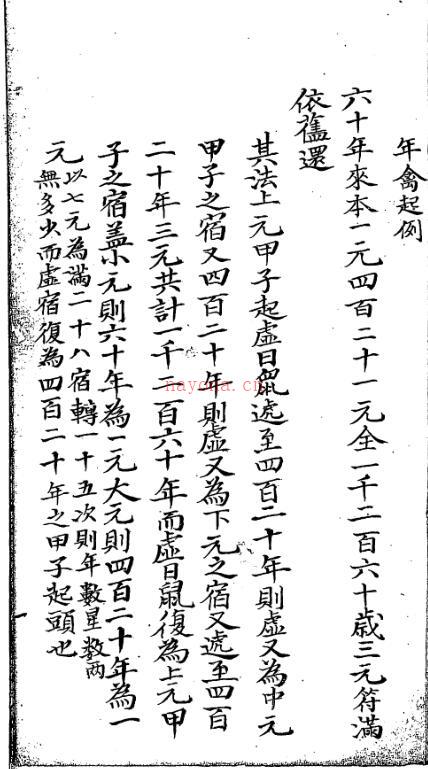 年禽起例
六十年來本一元四百二十一元全一千二百六十歲三元符滿
依舊還
其法上元甲子起虛日鼠遞至四百二十年則虛又為中元
甲子之宿又四百二十年則虛又為下元之宿又遞至四百
二十年三元共計一千二百六十年而虛日鼠復為上元甲
子之宿蓋小元則六十年為一元大元則四百二十年為一
元以七元為滿二十八宿轉一十五次則年數星數兩
無多少而虛宿復為四百二十年之甲子起頭也
nayona.cn